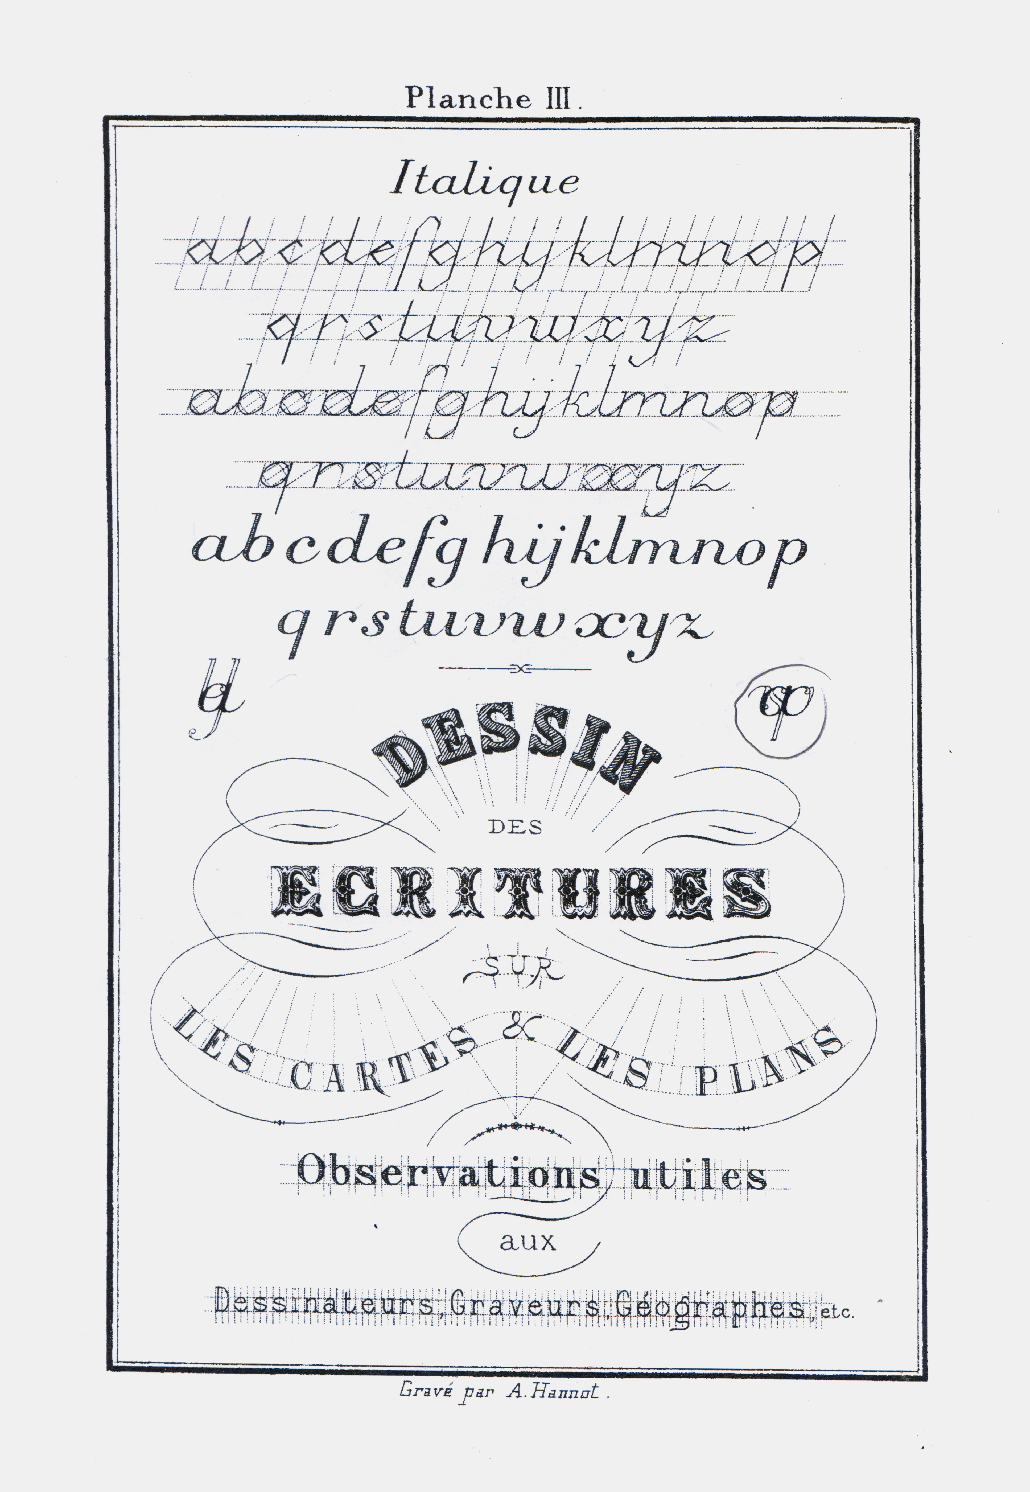 Planche III.
Italique
abcdefghijklmnop
qrstuvwxyz
abcdefghijklmnop
qrstuvwxyz
abcdefghijklmnop
qrstuvwxyz
DESSIN
DES
ECRITURES
SUR
LES CARTES & LES PLANS
Observations utiles
aux
Dessinateurs, Graveurs, Géographes, etc.
Gravé par A. Hannot.